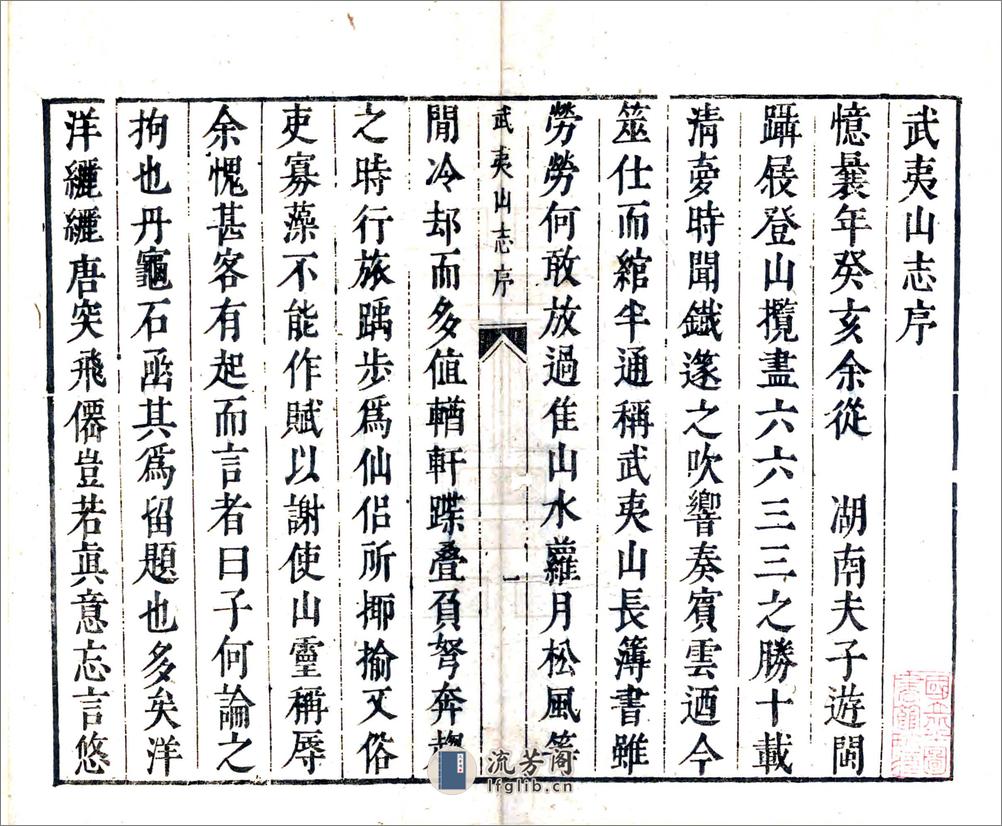 武夷山志序
憶曩年癸亥余從　湖南夫子遊閩
躡屐登山攬盡六六三三之勝十載
清夢時聞鐵邃之吹響奏賓雲迺今
筮仕而綰半通稱武夷山長簿書雖
勞勞何敢放過佳山水蘿月松風等
武夷山志序
一
閒冷却而多值輶軒蹀疊負弩奔趨
之時行旅踽步爲仙侶所揶揄又俗
吏寡藻不能作賦以謝使山靈稱辱
余愧甚客有起而言者曰子何論之
拘也丹龜石函其爲留題也多矣洋
洋纚纚唐突飛僊豈若眞意忘言悠
流芳阁
lfglib.cn